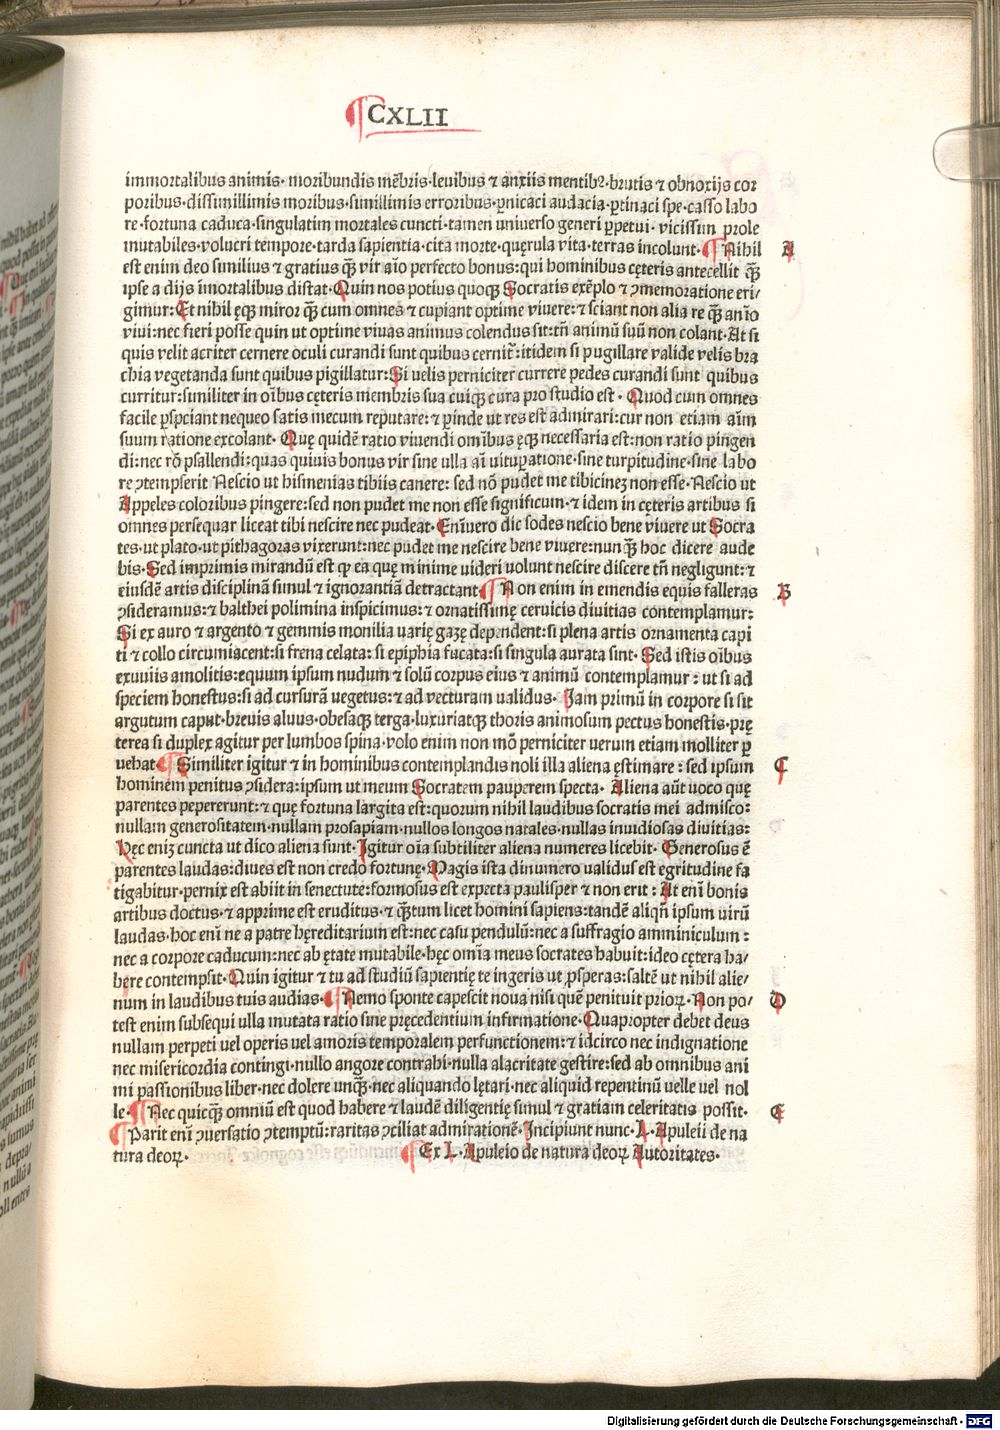 CXLII
immortalibus animis· moribundis mẽbris·leuibus ⁊ anxiis mentibꝰ·brutis ⁊ obnoxijs cor
poribus·dissimillimis moribus·simillimis erroribus·ꝑuicaci audacia·ꝑtinaci spe·casso labo
re·fortuna caduca·singulatim mortales cuncti·tamen uniuerso generi ꝑpetui· vicissim prole
mutabiles·volucri tempore·tarda sapientia·cita morte·quęrula vita·terras incolunt·¶ Nihil A
est enim deo similius ⁊ gratius q̃ꝫ vir aĩo perfecto bonus:qui hominibus cęteris antecellit q̃ꝫ
ipse a dijs ĩmortalibus distat·Quin nos potius quoqꝫ Socratis exẽplo ⁊ ꝯmemoratione eri/
gimur:Et nihil ęqꝫ miror q̃ꝫ cum omnes ⁊ cupiant optime viuere:⁊ sciant non alia re q̃ꝫ anĩo
viui:nec fieri posse quin ut optime viuas animus colendus sit:tñ animũ suũ non colant·At si
quis velit acriter cernere oculi curandi sunt quibus cernit᷑:itidem si pugillare valide velis bra
chia vegetanda sunt quibus pigillatur:Si velis perniciter currere pedes curandi sunt quibus
curritur:similiter in oĩbus cęteris membris sua cuiqꝫ cura pro studio est· Quod cum omnes
facile ꝑspciant nequeo satis mecum reputare:⁊ ꝑinde ut res est admirari:cur non etiam aĩm
suum ratione excolant· Quę quidẽ ratio viuendi omĩbus ęqꝫ necessaria est:non ratio pingen
di:nec rõ psallendi:quas quiuis bonus vir sine ulla aĩ vituꝑatione·sine turpitudine·sine labo
re ꝯtempserit Nescio ut hismenias tibiis canere: sed nõ pudet me tibicinẽ non esse·Nescio ut
Appeles coloribus pingere:sed non pudet me non esse significum·⁊ idem in cęteris artibus si
omnes persequar liceat tibi nescire nec pudeat·Enĩuero dic sodes nescio bene viuere ut Socra
tes·ut plato·ut pithagoras vixerunt:nec pudet me nescire bene viuere:nun q̃ꝫ hoc dicere aude
bis·Sed imprimis mirandũ est ꝙ ea quę minime videri volunt nescire discere tñ negligunt:⁊
eiusdẽ artis disciplinã simul ⁊ ignorantiã detractant·¶ Non enim in emendis equis falleras B
ꝯsideramus:⁊ balthei polimina inspicimus:⁊ ornatissimę ceruicis diuitias contemplamur:
Si ex auro ⁊ argento ⁊ gemmis monilia varię gazę dependent:si plena artis ornamenta capi
ti ⁊ collo circumiacent:si frena celata: si epiphia fucata:si singula aurata sint· Sed istis oĩbus
exuuiis amolitis:equum ipsum nudum ⁊ solũ corpus eius ⁊ animũ contemplamur : ut si ad
speciem honestus:si ad cursurã vegetus:⁊ ad vecturam validus· Jam primũ in corpore si sit
argutum caput·breuis aluus·obesaqꝫ terga·luxuriatqꝫ thoris animosum pectus honestis·prę
terea si duplex agitur per lumbos spina·volo enim non mõ perniciter verum etiam molliter ꝑ
vehat·¶ Similiter igitur ⁊ in hominibus contemplandis noli illa aliena ęstimare : sed ipsum C
hominem penitus ꝯsidera:ipsum ut meum Socratem pauperem specta· Aliena aũt voco quę
parentes pepererunt:⁊ quę fortuna largita est:quorum nihil laudibus socratis mei admisco:
nullam generositatem·nullam prosapiam·nullos longos natales·nullas inuidiosas diuitias:
Hęc enĩ cuncta ut dico aliena sunt·Igitur oĩa subtiliter aliena numeres licebit· Generosus ẽ
parentes laudas:diues est non credo fortunę·Magis ista dinumero validus est egritudine fa
tigabitur·pernix est abiit in senectute:formosus est expecta paulisper ⁊ non erit : At enĩ bonis
artibus doctus·⁊ apprime est eruditus·⁊ q̃ꝫtum licet homini sapiens:tandẽ aliqñ ipsum virũ
laudas·hoc enĩ ne a patre hęreditarium est:nec casu pendulũ:nec a suffragio amminiculum :
nec a corpore caducum:nec ab ętate mutabile·hęc omĩa meus socrates habuit:ideo cętera ha/
bere contempsit·Quin igitur ⁊ tu ad studiũ sapientię te ingeris ut ꝓsperas:saltẽ ut nihil alie/
num in laudibus tuis audias·¶ Nemo sponte capescit noua nisi quẽ penituit prioꝝ·Non po/ D
test enim subsequi ulla mutata ratio sine pręcedentium infirmatione·Quapropter debet deus
nullam perpeti vel operis vel amoris temporalem perfunctionem:⁊ idcirco nec indignatione
nec misericordia contingi·nullo angore contrahi·nulla alacritate gestire:sed ab omnibus ani
mi passionibus liber·nec dolere unq̃ꝫ·nec aliquando lętari·nec aliquid repentinũ velle vel nol
le·¶ Nec quicq̃ꝫ omniũ est quod habere ⁊ laudẽ diligentię simul ⁊ gratiam celeritatis possit· E
¶ Parit enĩ ꝯuersatio ꝯtemptũ:raritas ꝯciliat admirationẽ·Incipiunt nunc·L·Apuleii de na
tura deoꝝ· ¶ Ex L·Apuleio de natura deoꝝ Autoritates·
Digitalisierung gefördert durch die Deutsche Forschungsgemeinschaft - DFG